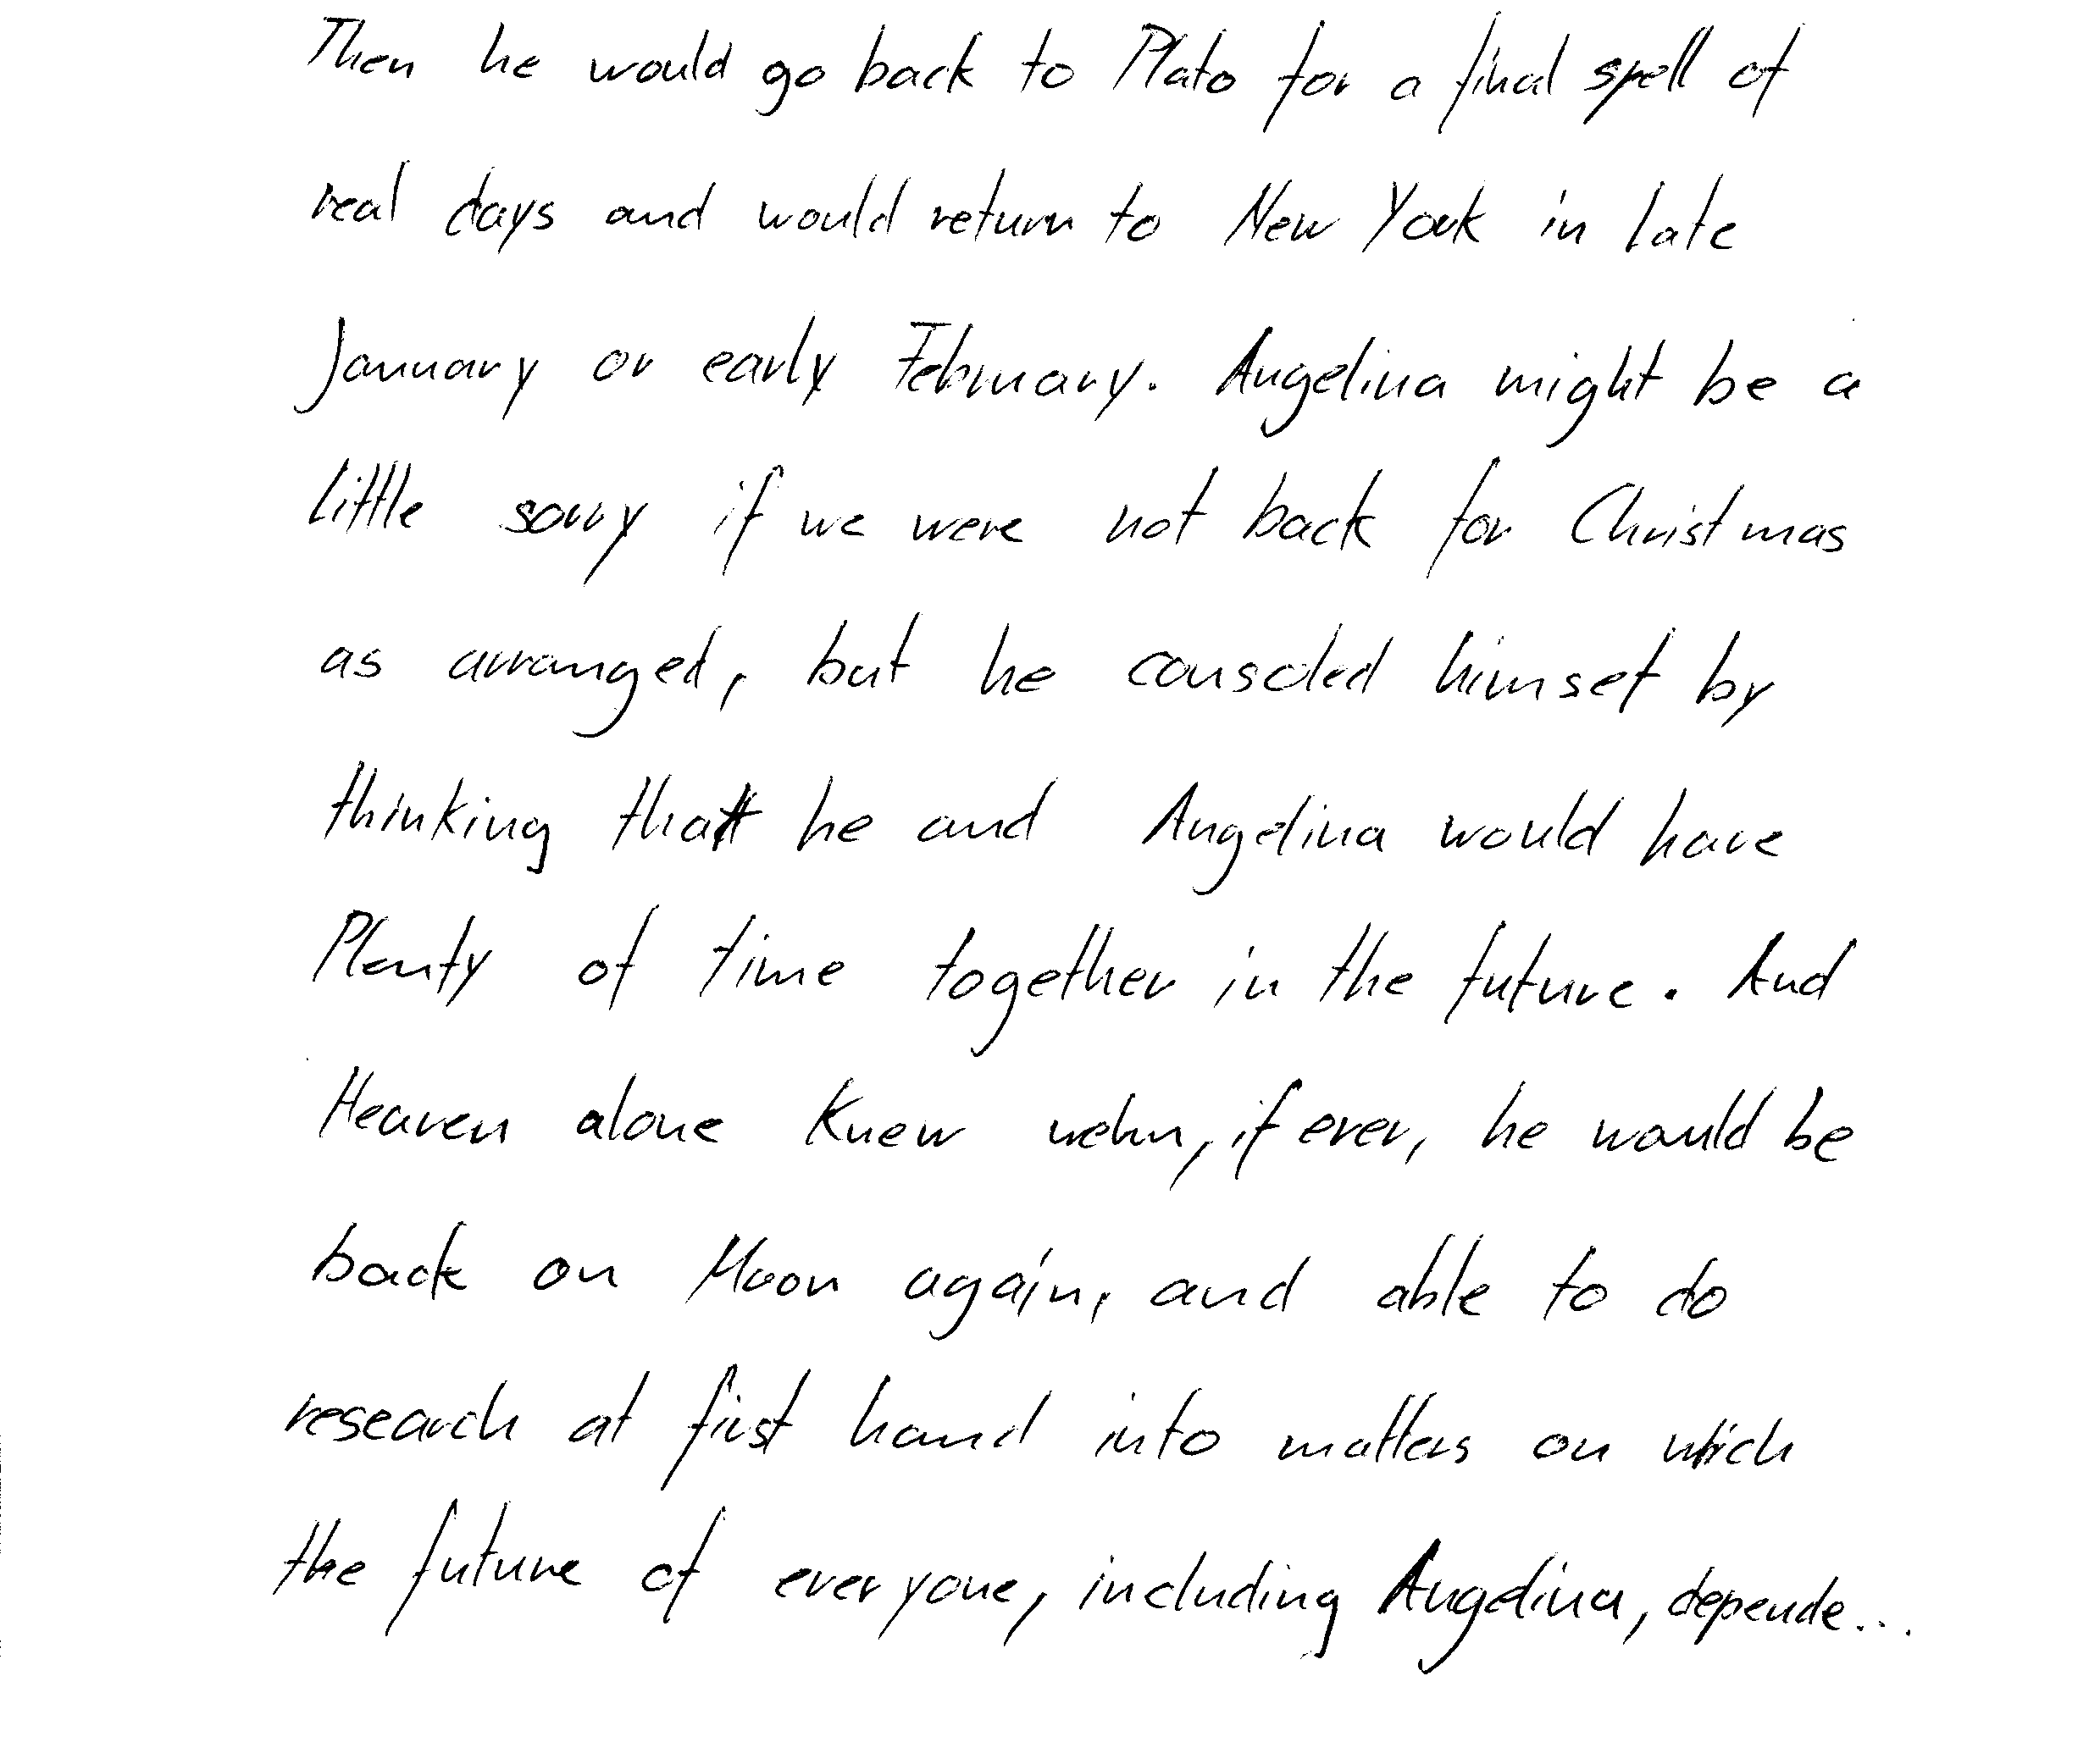 Then he would go back to Plato for a final spell of
real days and would return to New York in late
January or early February. Angelina might be a
little sorry if we were not back for Christmas
as arranged, but he consoled himsef by
thinking that he and Angelina would have
Plenty of time together in the future. And
Heaven alone knew wehn, if ever, he would be
back on Moon again, and able to do
research at first hand into matters on which
the future of everyone, including Angelina, depende...